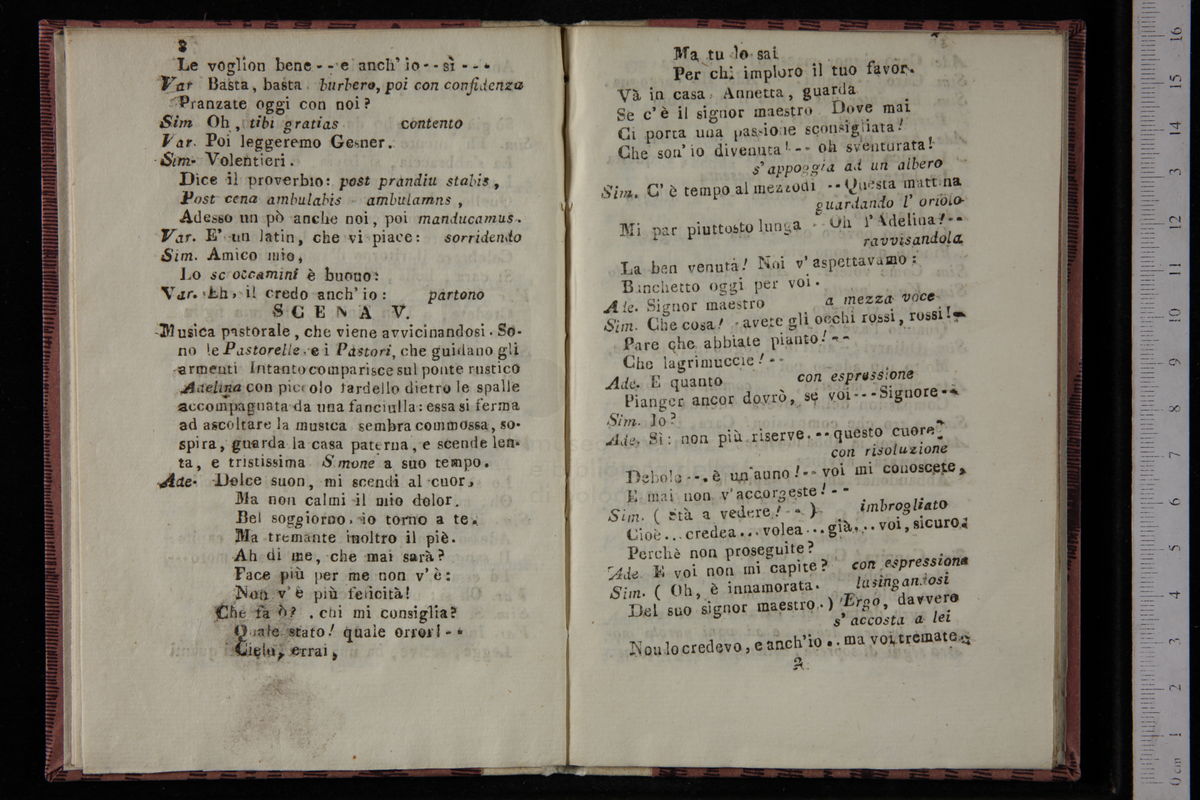 8
Le voglion bene - - e anch' io - - sì - - -
Var Basta, basta. burbero, poi con confidenza
Pranzate oggi con noi?
Sim Oh, tibi gratias contento
Var. Poi leggeremo Gesner.
Sim. Volentieri.
Dice il proverbio: post prandiu stabis,
Post cena ambulabis - ambulamns,
Adesso un pò anche noi, poi manducamus.
Var. E' un latin, che vi piace: sorridendo
Sim. Amico mio,
Lo scoccamini è buono:
Var. Eh, il credo anch' io: partono
SCENA V.
Musica pastorale, che viene avvicinandosi. So-
no le Pastorelle, e i Pastori, che guidano gli
armenti Intanto comparisce sul ponte rustico
Adelina con piccolo fardello dietro le spalle
accompagnata da una fanciulla: essa si ferma
ad ascoltare la musica sembra commossa, so-
spira, guarda la casa paterna, e scende len-
ta, e tristissima Simone a suo tempo.
Ade. Dolce suon, mi scendi al cuor,
Ma non calmi il mio dolor.
Bel soggiorno, io torno a te.
Ma tremante inoltro il piè.
Ah di me, che mai sarà?
Pace più per me non v' è:
Non v' è più felicità!
Che fa ò? . chi mi consiglia?
Quale stato! quale orror! - -
Cielo, errai,
Ma tu lo sai
Per chi imploro il tuo favor.
Và in casa, Annetta, guarda
Se c' è il signor maestro Dove mai
Ci porta una passione sconsigliata!
Che son' io divenuta! - - oh sventurata!
s' appoggia ad un albero
Sim. C' è tempo al mezzodì - - Questa mattina
guardando l' oriolo
Mi par piuttosto lunga - - Oh l' Adelina! - -
ravvisandola
La ben venuta! Noi v' aspettavamo:
Banchetto oggi per voi.
Ade. Signor maestro a mezza voce
Sim. Che cosa! - avete gli occhi rossi, rossi! - -
Pare che abbiate pianto! - -
Che lagrimuccie! - -
Ade. E quanto con espressione
Pianger ancor dovrò, se voi - - - Signore - -
Sim. Io?
Ade. Sì: non più riserve. - - questo cuore -
con risoluzione
Debole - - . è un' anno! - - voi mi conoscete,
E mai non v' accorgeste! - -
Sim. ( Stà a vedere! - - ) imbrogliato
Cioè . . . credea . . . volea . . . già, . . voi, sicuro.
Perchè non proseguite?
Ade E voi non mi capite? con espressione
Sim. ( Oh, è innamorata. lusingandosi
Del suo signor maestro. ) Ergo, davvero
s' accosta a lei
Non lo credevo, e anch'io . . ma voi tremate.
2